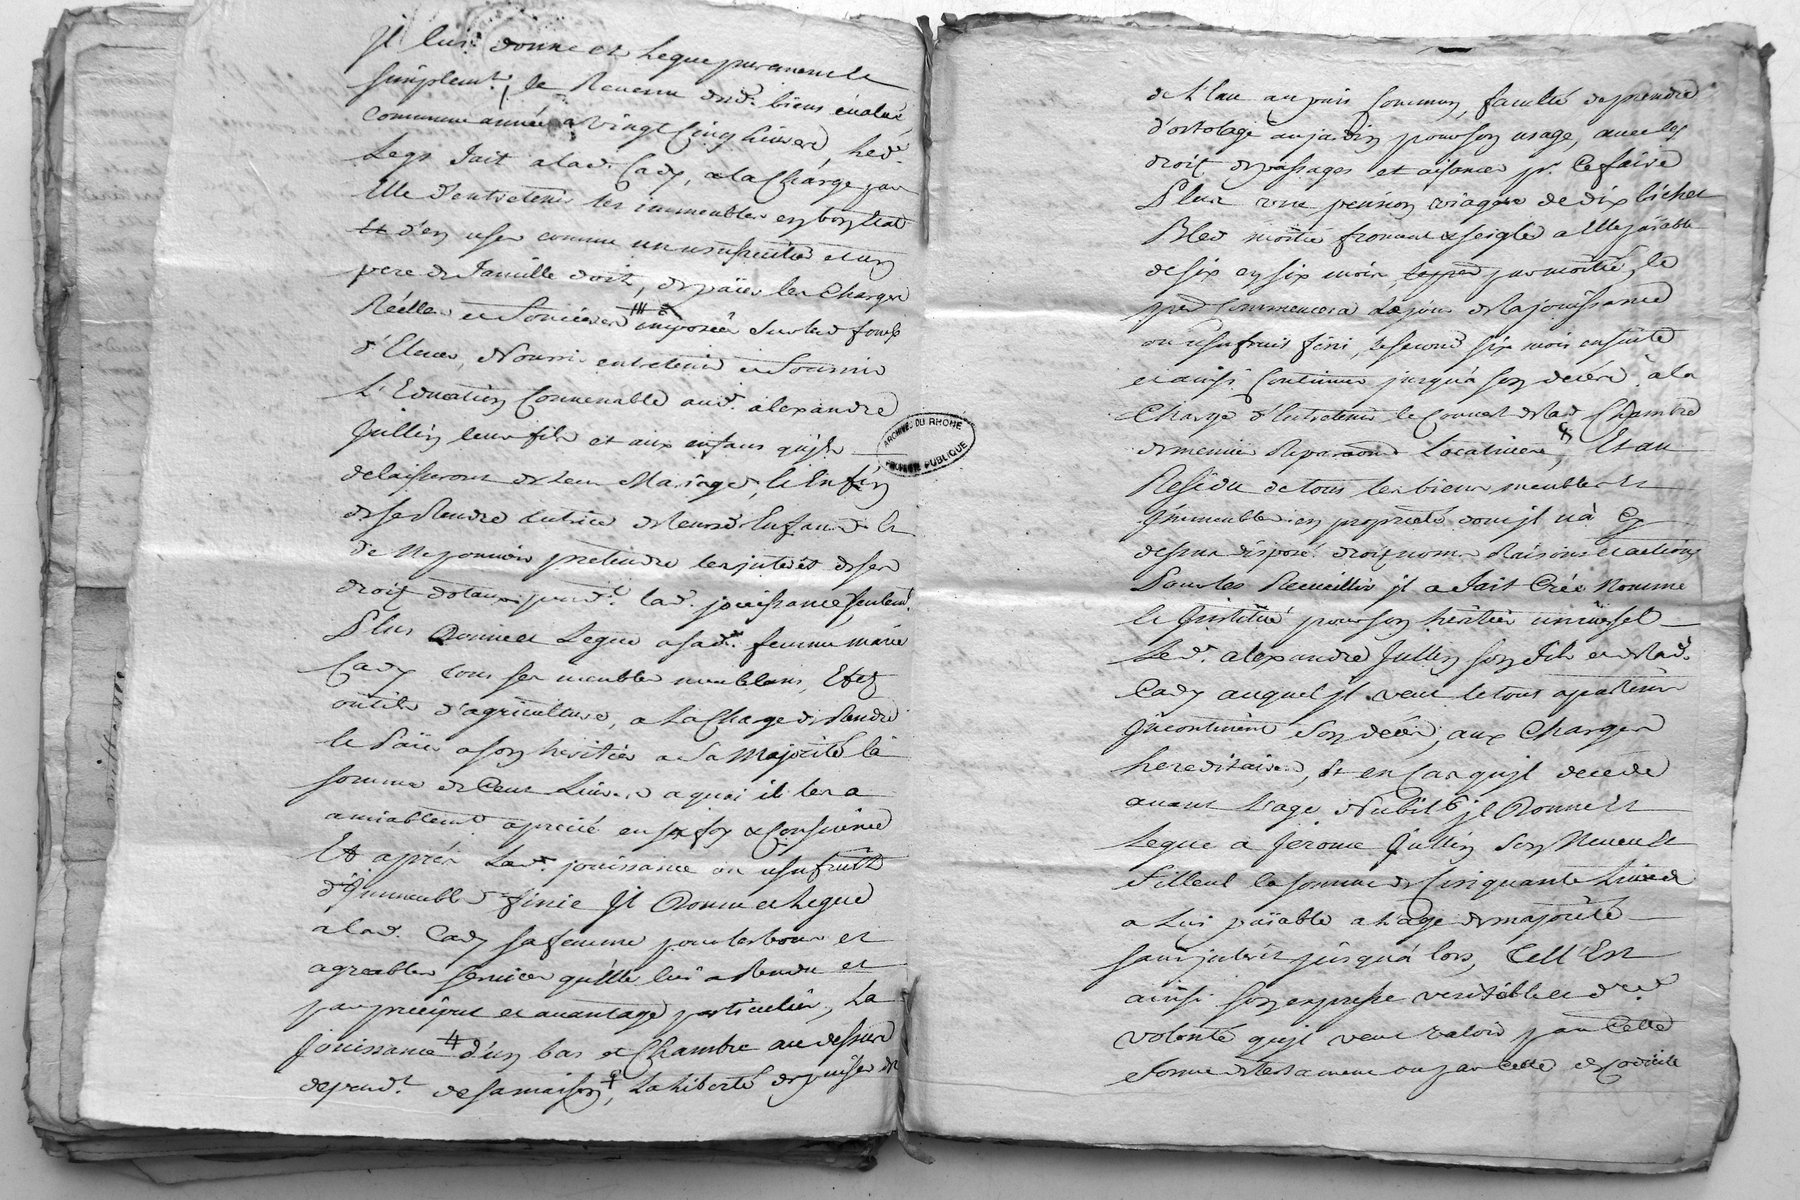 Il lui donne et Legue purement et
simplemt. le Revenu desd. biens évalué
commune année a vingt Cinq Livres, led.
Legs fait a lad. Cady, a la Charge par
Elle d'entretenir les immeubles en bon Etat
et d'en user comme un usufruitier et un
pere de famille doit, de païer les Charges
Réelles et foncieres imposées sur led. fonds
d'Elever, Nourrir entretenir et fournir
L'Education Convenable aud. alexandre
Jullien leur fils et aux enfans qu'ils
delaisseront de leur Mariage, et Enfin
de se Rendre tutrice de leursd. Enfans et
de Ne pouvoir pretendre les interêt de ses
droit dotaux pendt. lad. jouissance seulemt.
Plus Donne et Legue a sad. femme marie
Cady tous ses meubles meublans, Et
outils d'agriculture, a La Charge de Rendre
et Païer a son heritier a Sa Majorité la
somme de Cent Livres a quoi il les a
amiablemt. aprecié en sa foy et Conscience
Et après Lad. jouissance ou usufruit
d'Immeubles finie Il Donne et Legue
a lad. Cady sa femme pour les bons et
agreables services qu'elle lui a Rendu et
par preciput et avantage particulier, La
Jouissance d'un bas et Chambre au dessus
dependt. de sa maison, La Liberté de puiser de
de L'eau au puis Commun, faculté de prendre
d'ortolage au jardin pour son usage, avec les
droit de passages et aisances pr. Ce faire
Plus une pension viagere de dix bichet
Bled moitié froment & seigle a Elle païable
de six en six mois, par moitié, le
pred. Commencera Le jour de la jouissance
ou usufruit fini, le second six mois ensuite
et ainsi Continuer jusqu'a son décéd. a la
Charge d'Entretenir le Couvert de lad. Chambre
de menües Reparaons Locatives, Et au
Residu de tous les biens meubles et
Immeubles en propriété dont il n'a Cy
dessus disposé droit noms Raisons et actions
Pour les Recueillir il a fait Créé Nommé
et Institué pour son héritier universel
Led. alexandre Jullien son fils et de lad.
Cady auquel il veut le tout apartenir
Incontinent son décés, aux Charges
hereditaires, Et en Cas qu'il decede
avant L'age Nubil il Donne et
Legue a Jerome Jullien Son Neveu et
filleul la somme de Cinquante Livres
a Lui païable a L'age de majorité
sans interêt jusqu'a lors, Telle Est
ainsi son expresse veritable et dre.
volonté qu'il veut valoir par Cette
forme de testament ou par Celle de Codicile
ARCHIVES DU RHONE
PROPRIETE PUBLIQUE